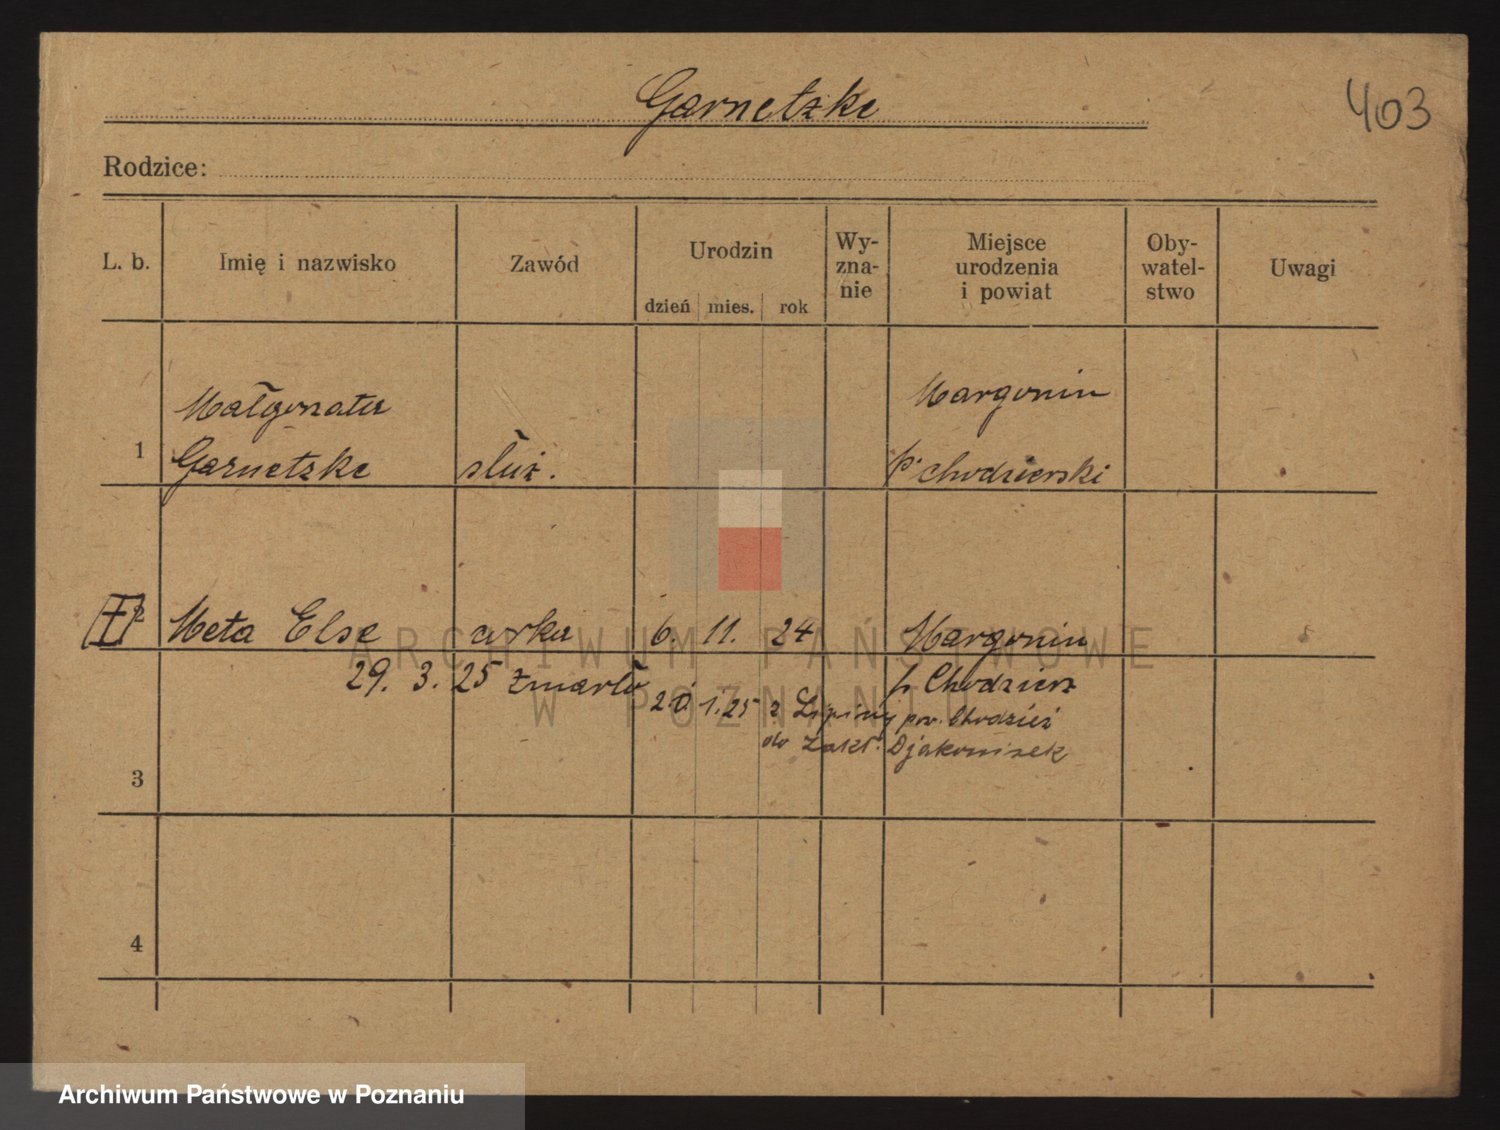 Garnetzke
403
Rodzice:
L. b.
Imię i nazwisko
Zawód
Urodzin
dzień mies. rok
Wy-
zna-
nie
Miejsce
urodzenia
i powiat
Oby-
watel-
stwo
Uwagi
Małgorzata
Margonin
1 Garnetzke służ. p. chodzierski
2 Meta Else córka 6. 11. 24 Margonin
29. 3. 25 zmarło p. Chodzież
20 1. 25 z Lipiny pow. Chodzież
do Zakł. Djakonisek
3
4
ARCHIWUM PAŃSTWOWE
W POZNANIU
Archiwum Państwowe w Poznaniu